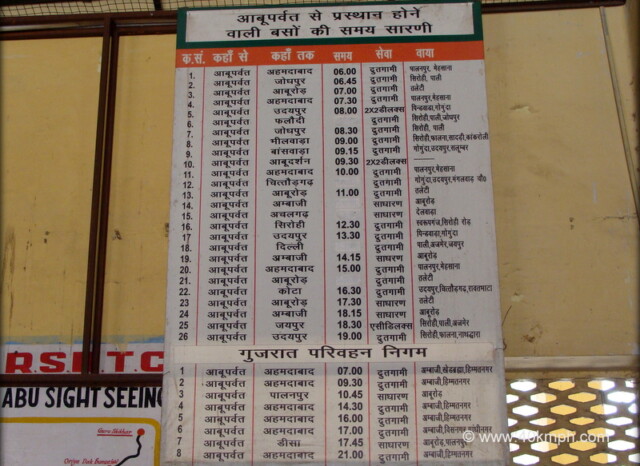 आबूपर्वत से प्रस्थान होने
वाली बसों की समय सारणी
क.सं. कहाँ से कहाँ तक समय सेवा वाया
1. आबूपर्वत अहमदाबाद 06.00 द्रुतगामी पालनपुर, मेहसाना
2. आबूपर्वत जोधपुर 06.45 द्रुतगामी सिरोही, पाली
3. आबूपर्वत आबूरोड़ 07.00 द्रुतगामी तलेटी
4. आबूपर्वत अहमदाबाद 07.30 द्रुतगामी पालनपुर,मेहसाना
5. आबूपर्वत उदयपुर 08.00 2X2डीलक्स पिन्डवाडा,गोगुंदा
6. आबूपर्वत फलौदी द्रुतगामी सिरोही,पाली,जोधपुर
7. आबूपर्वत जोधपुर 08.30 द्रुतगामी सिरोही, पाली
8. आबूपर्वत भीलवाड़ा 09.00 द्रुतगामी सिरोही,फालना,सादडी,कांकरोली
9. आबूपर्वत बांसवाड़ा 09.15 द्रुतगामी गोगुंदा,उदयपुर,सलूम्बर
10. आबूपर्वत आबूदर्शन 09.30 2X2डीलक्स
11. आबूपर्वत अहमदाबाद 10.00 द्रुतगामी पालनपुर,मेहसाना
12. आबूपर्वत चित्तौड़गढ़ द्रुतगामी गोगुंदा,उदयपुर,मंगलवाड़ चौ०
13. आबूपर्वत आबूरोड़ 11.00 द्रुतगामी तलेटी
14. आबूपर्वत अम्बाजी साधारण आबूरोड़
15. आबूपर्वत अचलगढ़ साधारण देलवाड़ा
16. आबूपर्वत सिरोही 12.30 द्रुतगामी स्वरूपगंज,सिरोही रोड़
17. आबूपर्वत उदयपुर 13.30 द्रुतगामी पिन्डवाडा,गोगुंदा
18 आबूपर्वत दिल्ली द्रुतगामी पाली,अजमेर,जयपुर
19. आबूपर्वत अम्बाजी 14.15 साधरण आबूरोड़
20. आबूपर्वत अहमदाबाद 15.00 द्रुतगामी पालनपुर,मेहसाना
21. आबूपर्वत आबूरोड़ द्रुतगामी तलेटी
22. आबूपर्वत कोटा 16.30 द्रुतगामी उदयपुर,चित्तौड़गढ़,रावतभाटा
23 आबूपर्वत आबूरोड़ 17.30 साधारण तलेटी
24 आबूपर्वत अम्बाजी 18.15 साधारण आबूरोड़
25 आबूपर्वत जयपुर 18.30 एसीडिलक्स सिरोही,पाली,अजमेर
26 आबूपर्वत उदयपुर 19.00 द्रुतगामी सिरोही,फालना,नाथद्धारा
गुजरात परिवहन निगम
1 आबूपर्वत अहमदाबाद 07.00 द्रुतगामी अम्बाजी,खेडब्रह्मा,हिम्मतनगर
2 आबूपर्वत अहमदाबाद 09.30 द्रुतगामी अम्बाजी,हिम्मतनगर
3 आबूपर्वत पालनपुर 10.45 साधारण आबूरोड़
4 आबूपर्वत अहमदाबाद 14.30 द्रुतगामी अम्बाजी,हिम्मतनगर
5 आबूपर्वत अहमदाबाद 16.00 द्रुतगामी अम्बाजी,हिम्मतनगर
6 आबूपर्वत अहमदाबाद 17.00 द्रुतगामी अम्बाजी,विसनगर,गांधीनगर
7 आबूपर्वत डीसा 17.45 साधारण आबूरोड़,पालनपुर
8 आबूपर्वत अहमदाबाद 21.00 द्रुतगामी अम्बाजी,हिम्मतनगर
R.S.R.T.C.
ABU SIGHT SEEING
Guru Shikhar
© www.40kmph.com